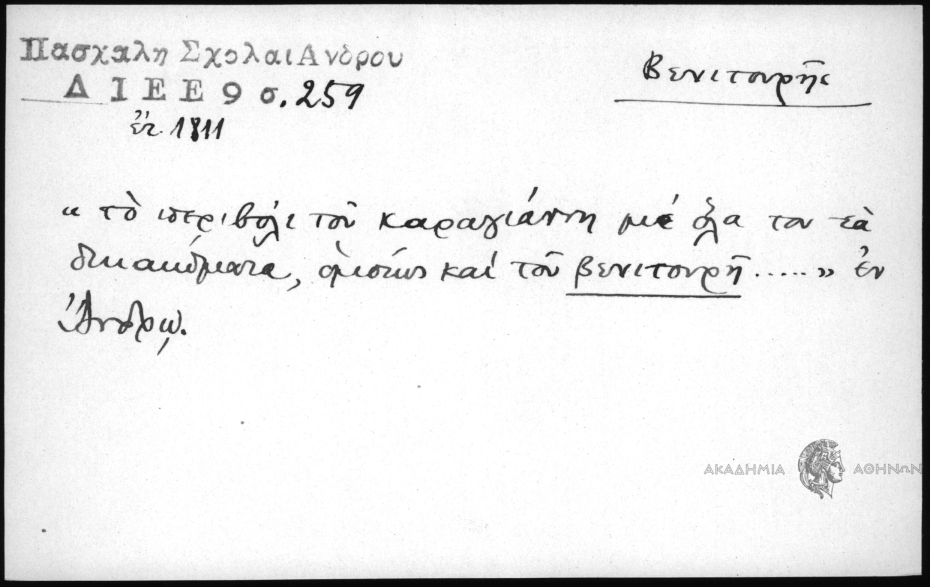 Πασχαλη Σχολαι Ανδρου
Δ Ι Ε Ε 9 σ. 259
ἔτ. 1811
Βενιτουρῆς
« τὸ περιβόλι τοῦ καραγιάννη μὲ ὅλα του τὰ
δικαιώματα, ὁμοίως καί τοῦ βενιτουρῆ ..... » ἐν
Ἄνδρῳ.
ΑΚΑΔΗΜΙΑ ΑΘΗΝΩΝ